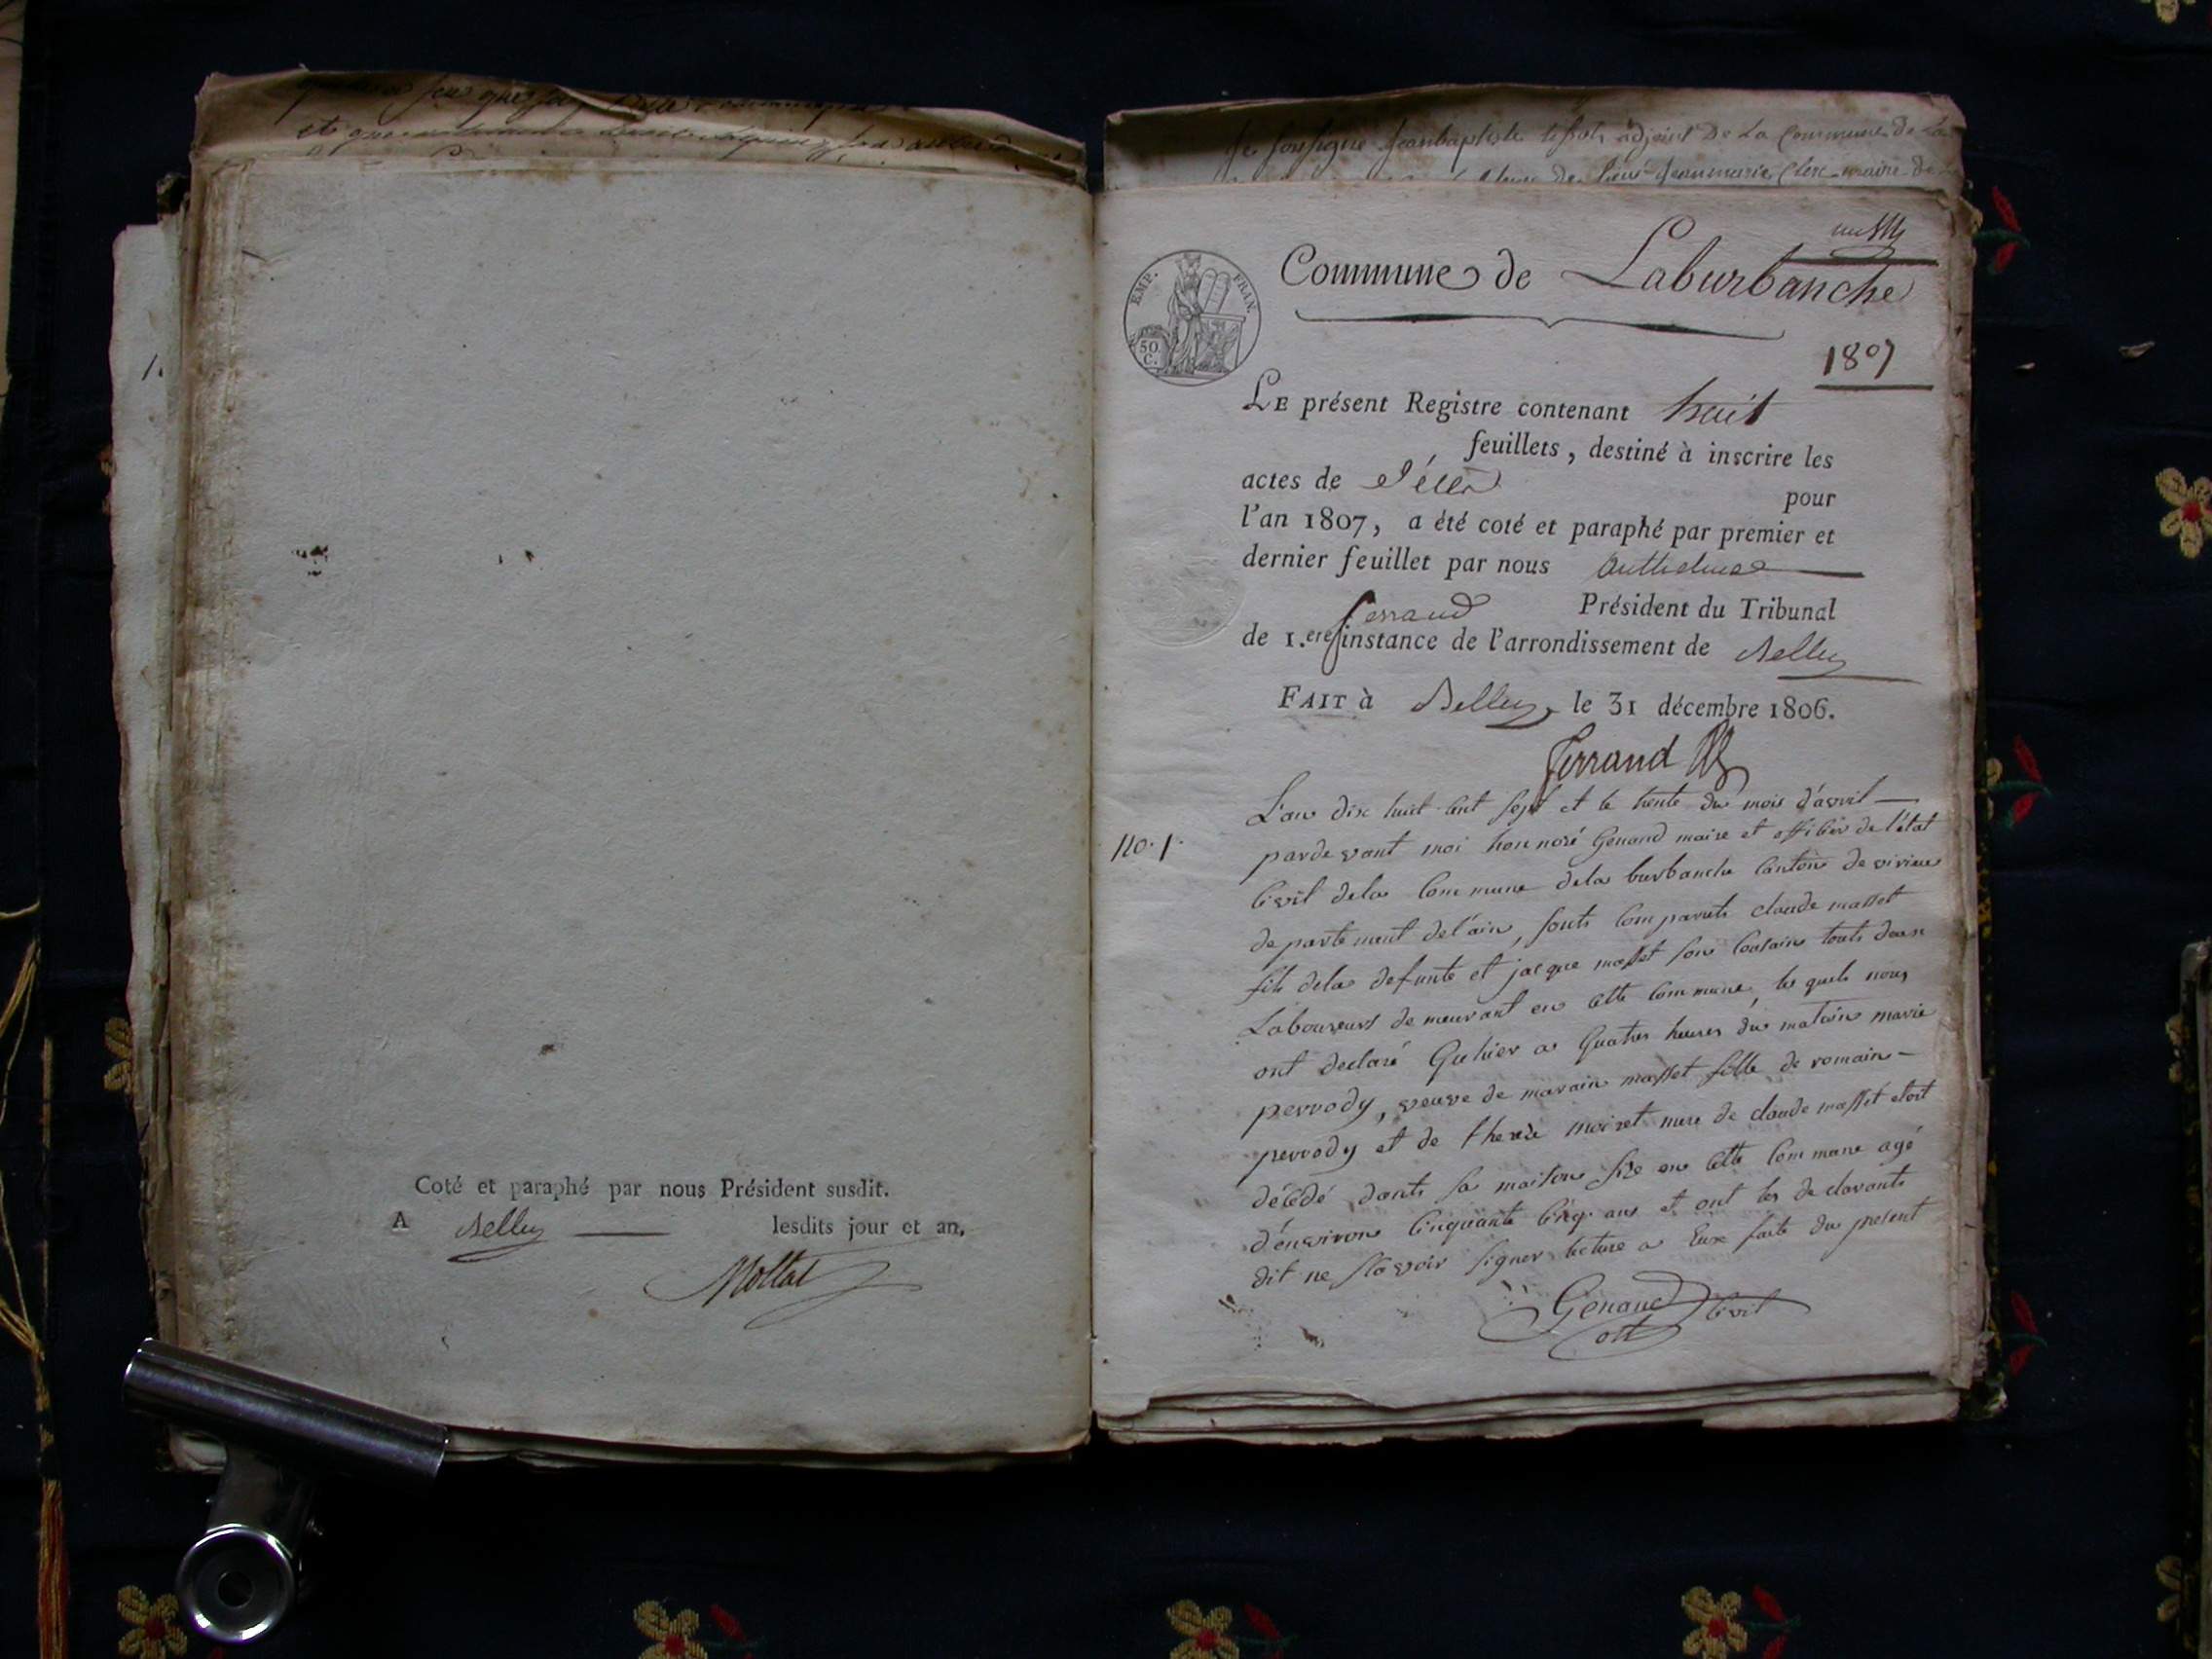 Coté et paraphé par nous Président susdit.
A Belley lesdits jour et an.
Mollat
Je soussigné Jeanbaptiste adjoint De La Commune de La
jeanmarie Clerc maire de
Commune de Laburbanche
1807
EMP. FRAN.
50 C.
LE présent Registre contenant huit
feuillets, destiné à inscrire les
actes de Décès pour
l'an 1807, a été coté et paraphé par premier et
dernier feuillet par nous Anthelme
Ferrand Président du Tribunal
de 1.ere instance de l'arrondissement de Belley
FAIT à Belley, le 31 décembre 1806.
Ferrand
No. 1.
L'an dix huit cent sept et le trente du mois d'avril
pardevant moi honnoré Genand maire et officier de l'état
Civil dela Commune dela burbanche Canton de virieu
departement del'ain, sonts Comparuts claude masset
fils dela defunte et jacque masset son Cousain touts deux
Laboureurs demeurant en Cette Commune, les quels nous
ont declaré Quhier a Quatres heures du matain marie
perrody, veuve de marain masset fille de romain
perrody et de therese moiret mere de claude masset etoit
décédé dants sa maison size en Cette Commune agé
d'environ Cinquante Cinq ans et ont les declarants
dit ne sçavoir signer lecture a Eux faite du present
Genand off Civil